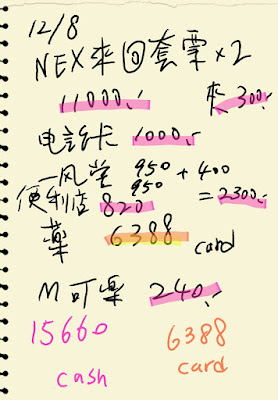 12/8
NEX來回套票×2
11000.- 來300.-
电話卡 1000.-
一風堂 950 + 400
950
便利店 820 = 2300.-
藥 6388 card
M可樂 240.-
15660 6388
cash card